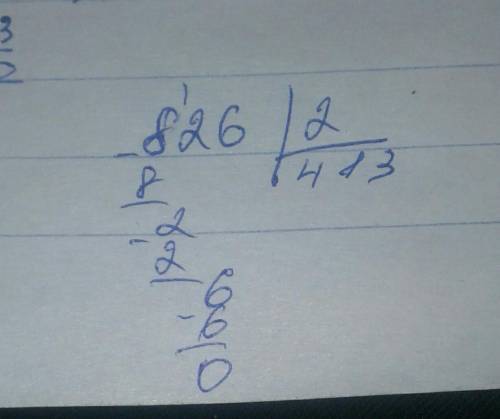 826 | 2
- 8 413
2
- 2
6
- 6
0